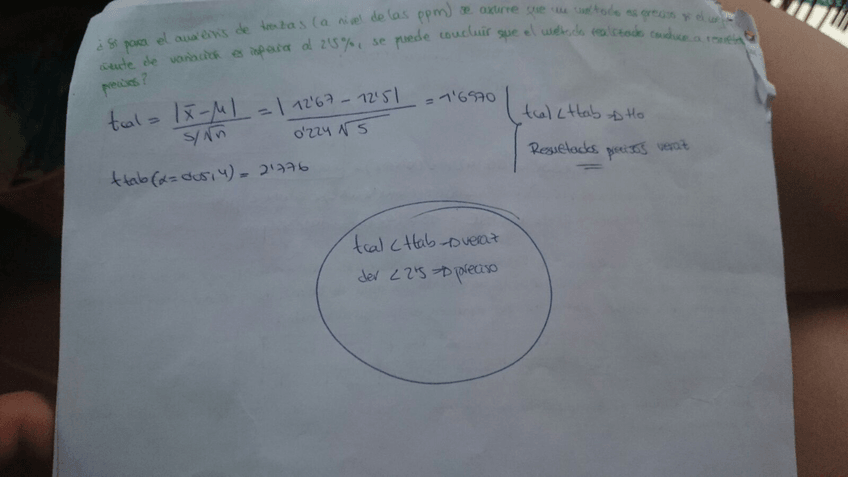 ¿Si para el análisis de trazas (a nivel de las ppm) se asume que un método es preciso si el
de variación es inferior al 2'5%, se puede concluir que el método realizado conduce a
precisos?
tcal = |x̄-μ| / s/√n = | 12'67 - 12'5| / 0'224√5 = 1'6970
tcal < ttab ⇒ Ho
Resultados precisos veraz
ttab (α=0'05, 4) = 2'776
tcal < ttab ⇒ veraz
der < 2'5 ⇒ preciso